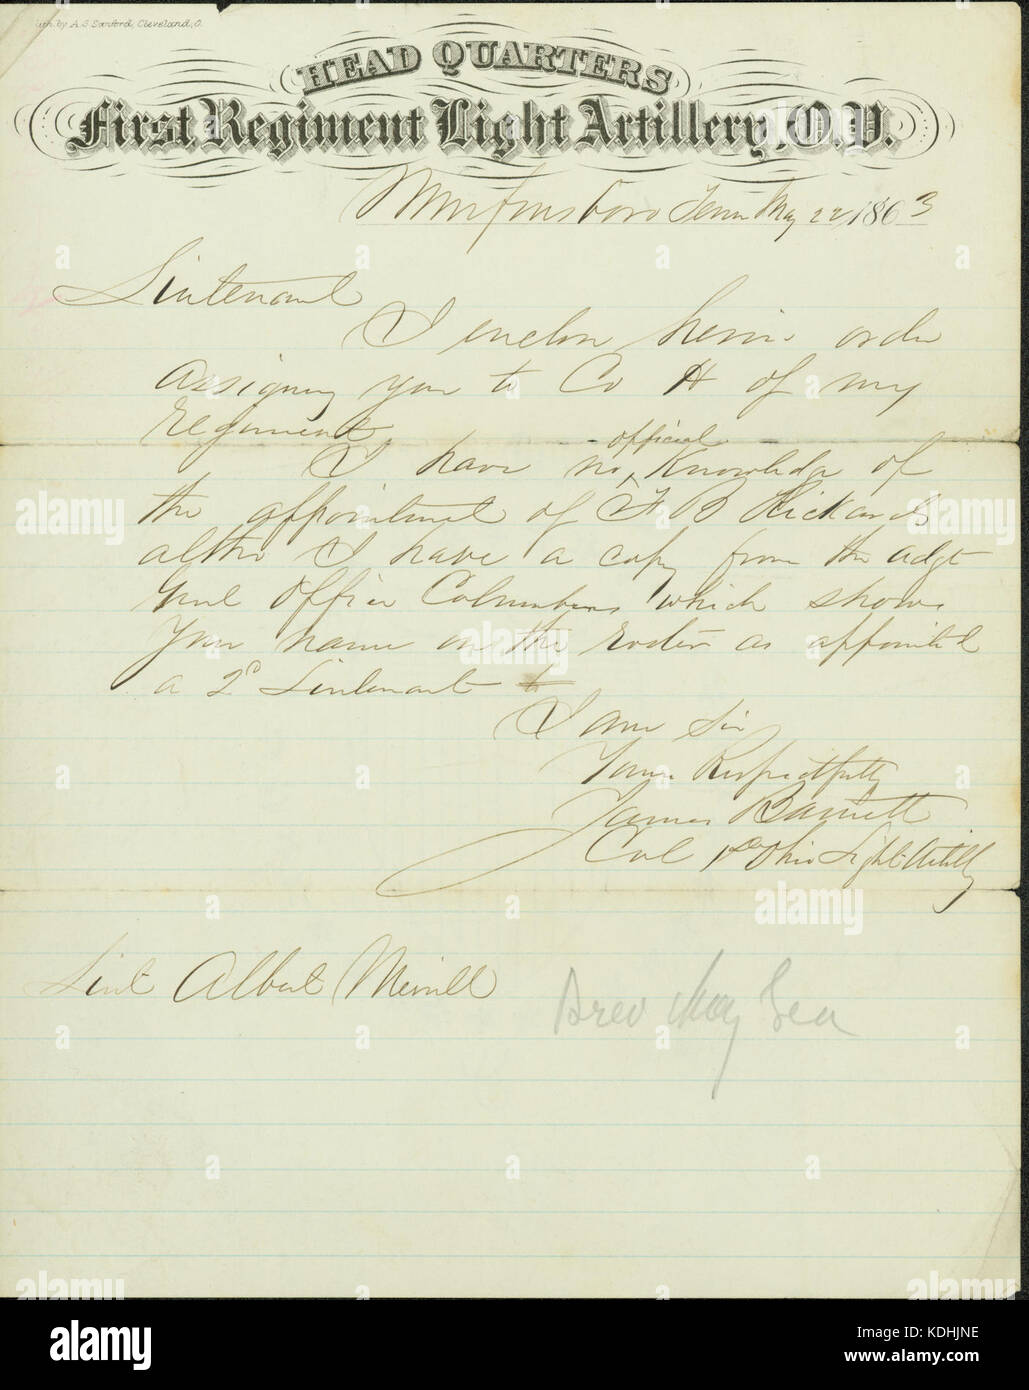 Lith. by A. S. Sanford, Cleveland, O.
HEAD QUARTERS
First Regiment Light Artillery, O.V.
Murfreesboro Tenn May 22, 1863
Lieutenant
I enclose herein order
assigning you to Co H of my
regiment
official
I have no ^ Knowledge of
the appointment of F B Rickards
altho I have a copy from the Adgt
Genl Office Columbus which shows
your name on the roster as appointed
a 2d Lieutenant to
I am Sir
Yours Respectfully
James Barnett
Col 1st Ohio Light Artilly
Lieut Albert Merrill
Brev Maj Gen
alamy
alamy
alamy
Image ID: KDHJNE
www.alamy.com